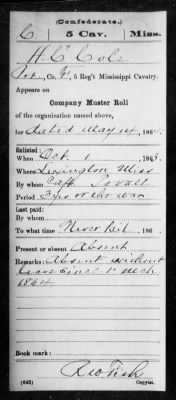 (Confederate.)
C 5 Cav. Miss.
H. C. Cole
Pvt., Co. F, 5 Reg't Mississippi Cavalry.
Appears on
Company Muster Roll
of the organization named above,
for dated May 14, 1864.
Enlisted:
When Oct. 1, 1863.
Where Lexington Miss
By whom Capt.
Period 3 yrs or the war
Last paid:
By whom
To what time Never paid, 186 .
Present or absent Absent
Remarks: Absent without
leave since 1" Mch
1864
Book mark:
(642) Copyist.